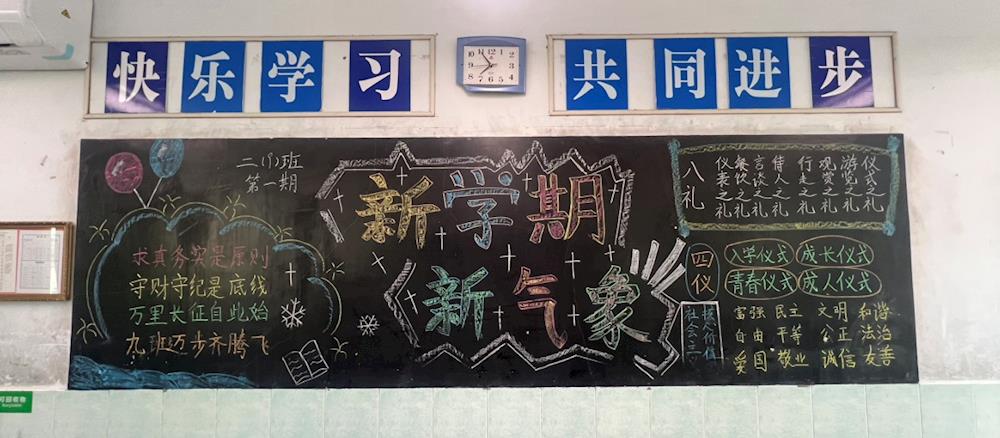 快乐学习
共同进步
二(9)班
第一期
求真务实是原则
守则守纪是底线
万里长征自此始
九班迈步齐腾飞
新学期
新气象
八礼
仪表之礼
餐饮之礼
言谈之礼
待人之礼
行走之礼
观赏之礼
游览之礼
仪式之礼
四仪
入学仪式 成长仪式
青春仪式 成人仪式
社会主义
核心价值
富强 民主 文明 和谐
自由 平等 公正 法治
爱国 敬业 诚信 友善
可回收物